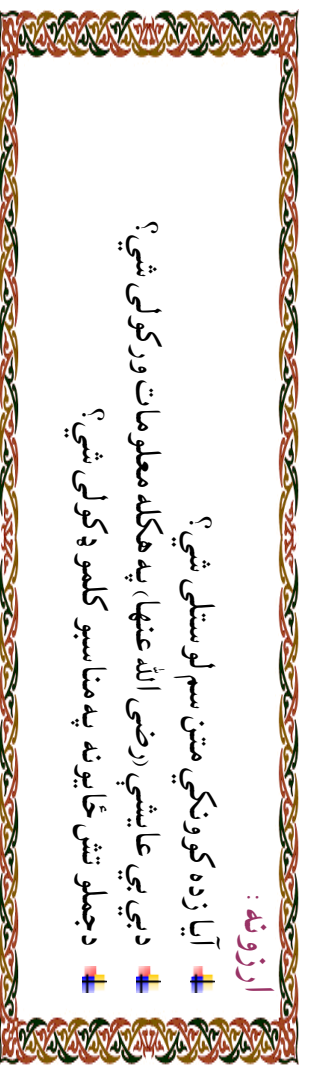 ارزونه :
آیا زده کوونکي متن سم لوستلی شي؟
دبي بي عایشي (رضی الله عنها) په هکله معلومات ورکولی شي؟
دجملو تش ځایونه په مناسبو کلمو ډکولی شي؟